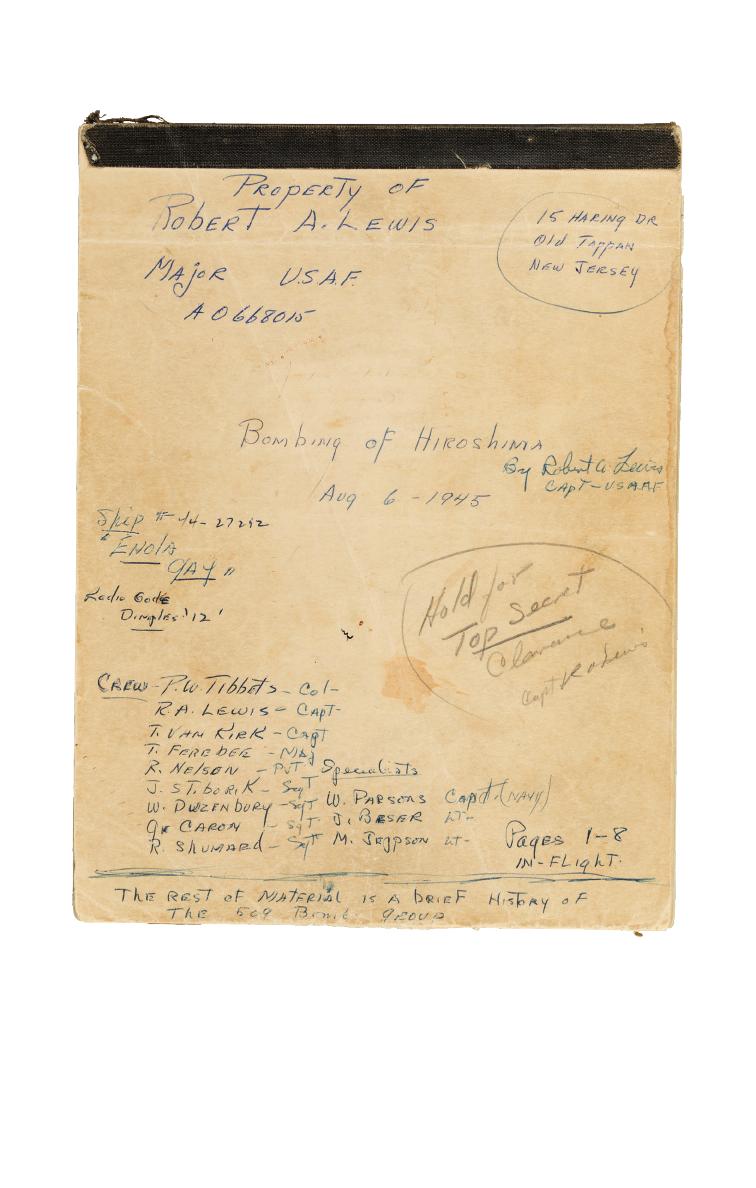 Property of
Robert A. Lewis
15 Haring Dr
Old Tappan
New Jersey
Major U.S.A.F.
A0668015
Bombing of Hiroshima
By Robert A. Lewis
Capt-USAAF
Aug 6-1945
Ship # 44-27292
"Enola
Gay"
Radio Code
Dimples '12'
Hold for
Top Secret
Clearance
Capt R A Lewis
Crew - P.W. Tibbets - Col-
R.A. Lewis - Capt-
T. Van Kirk - Capt
T. Ferebee - Maj
R. Nelson - Pvt
J. Stiborik - Sgt
W. Duzenbury - Sgt
G. Caron - Sgt
R. Shumard - Sgt
Specialists
W. Parsons Capt. (Navy)
J. Beser Lt-
M. Jeppson Lt-
Pages 1-8
in-flight.
The rest of material is a brief history of
the 509 Bomb group